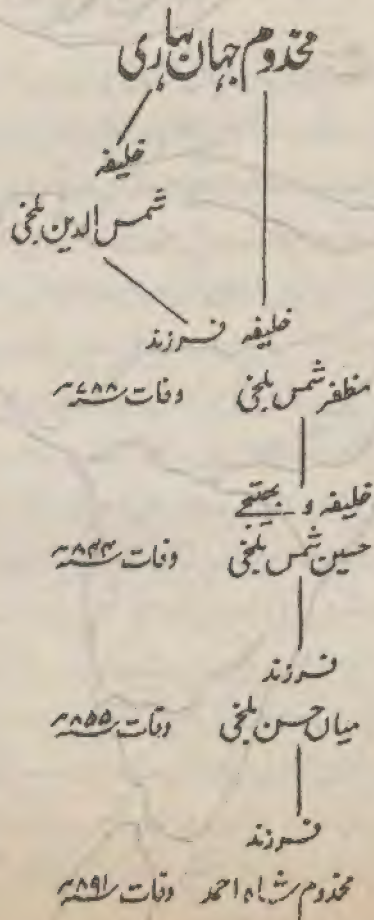 مخدوم جہاں بہاری
خلیفہ
شمس الدین بلخی
خلیفہ فرزند
مظفر شمس بلخی وفات سنہ ۷۸۸ھ
خلیفہ و بھتیجے
حسین شمس بلخی وفات سنہ ۸۴۴ھ
فرزند
میاں حسن بلخی وفات سنہ ۸۵۵ھ
فرزند
مخدوم شاہ احمد وفات سنہ ۸۹۱ھ